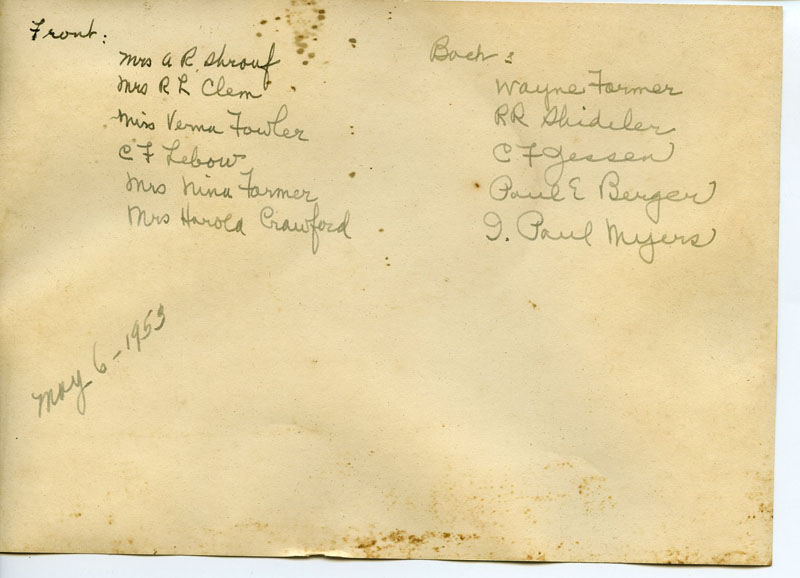 Front:
Mrs A R Shrouf
Mrs R L Clem
Miss Verna Fowler
C F Lebow
Mrs Nina Farmer
Mrs Harold Crawford
Back:
Wayne Farmer
RR Shideler
C F Jessen
Paul E Berger
I. Paul Myers
May 6-1953